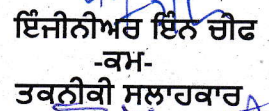 ਇੰਜੀਨੀਅਰ ਇੰਨ ਚੀਫ
-ਕਮ-
ਤਕਨੀਕੀ ਸਲਾਹਕਾਰ